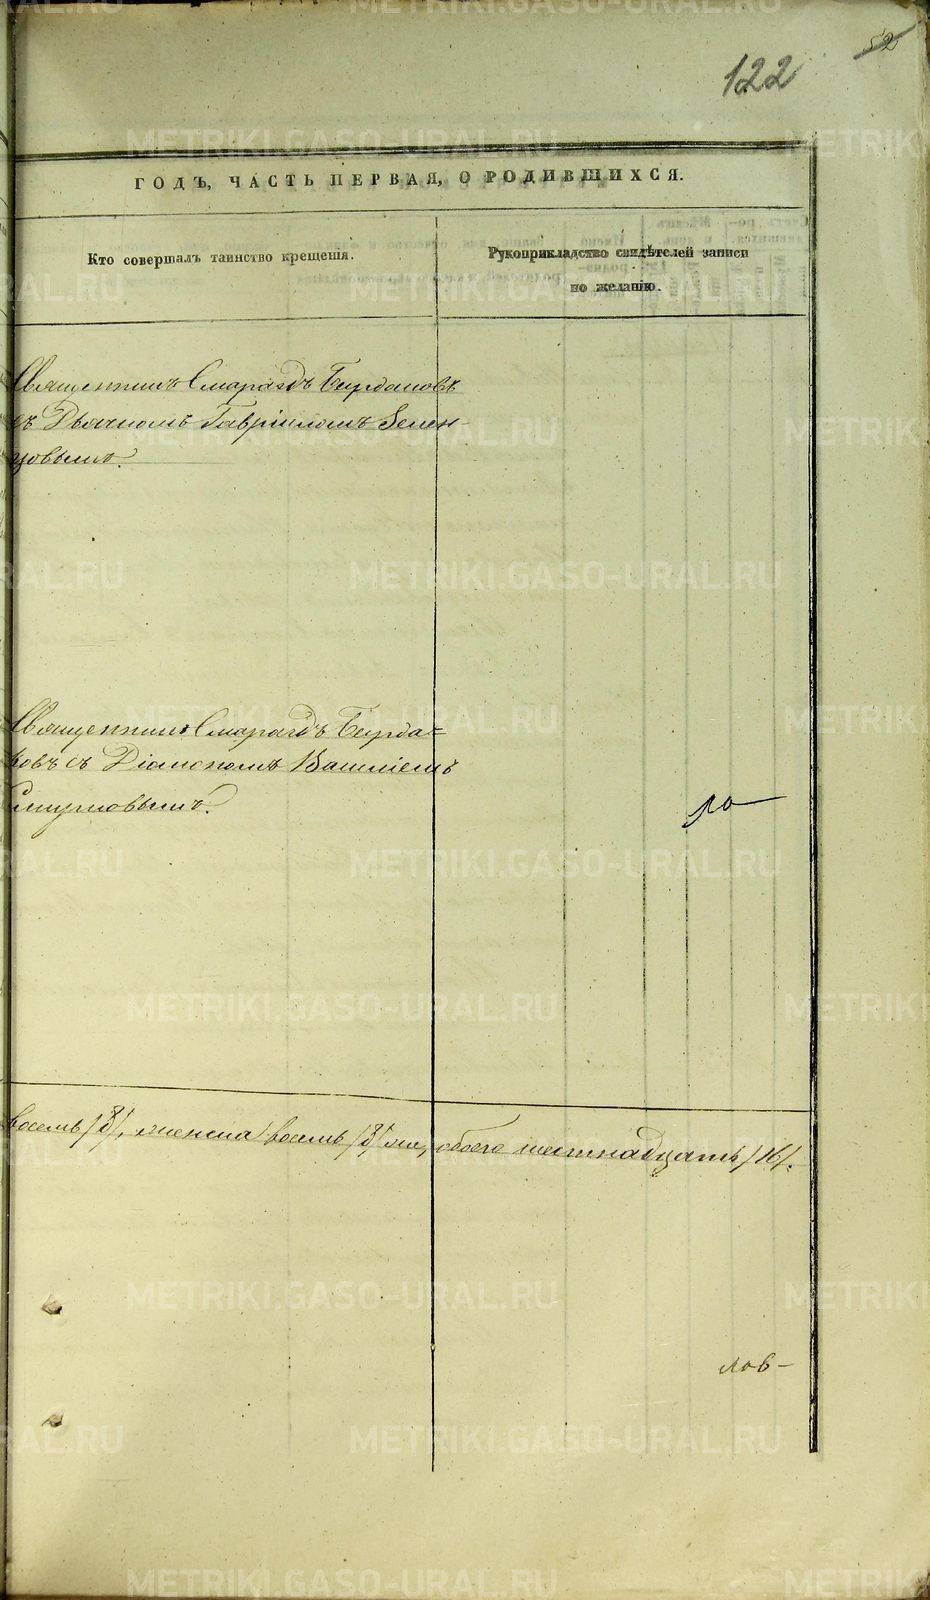 52
122
ГОДЪ, ЧАСТЬ ПЕРВАЯ, О РОДИВШИХСЯ.
Кто совершалъ таинство крещенія.
Рукоприкладство свидѣтелей записи
по желанію.
Священникъ Смарагдъ Бурдаковъ
съ Дьячкомъ Гавріиломъ Зелен-
цовымъ.
Священникъ Смарагдъ Бурда=
ковъ съ Діакономъ Василіемъ
ло
восемь /8/, женска восемь /8/ же, обоего шестнадцать /16/.
лов-
METRIKI.GASO-URAL.RU